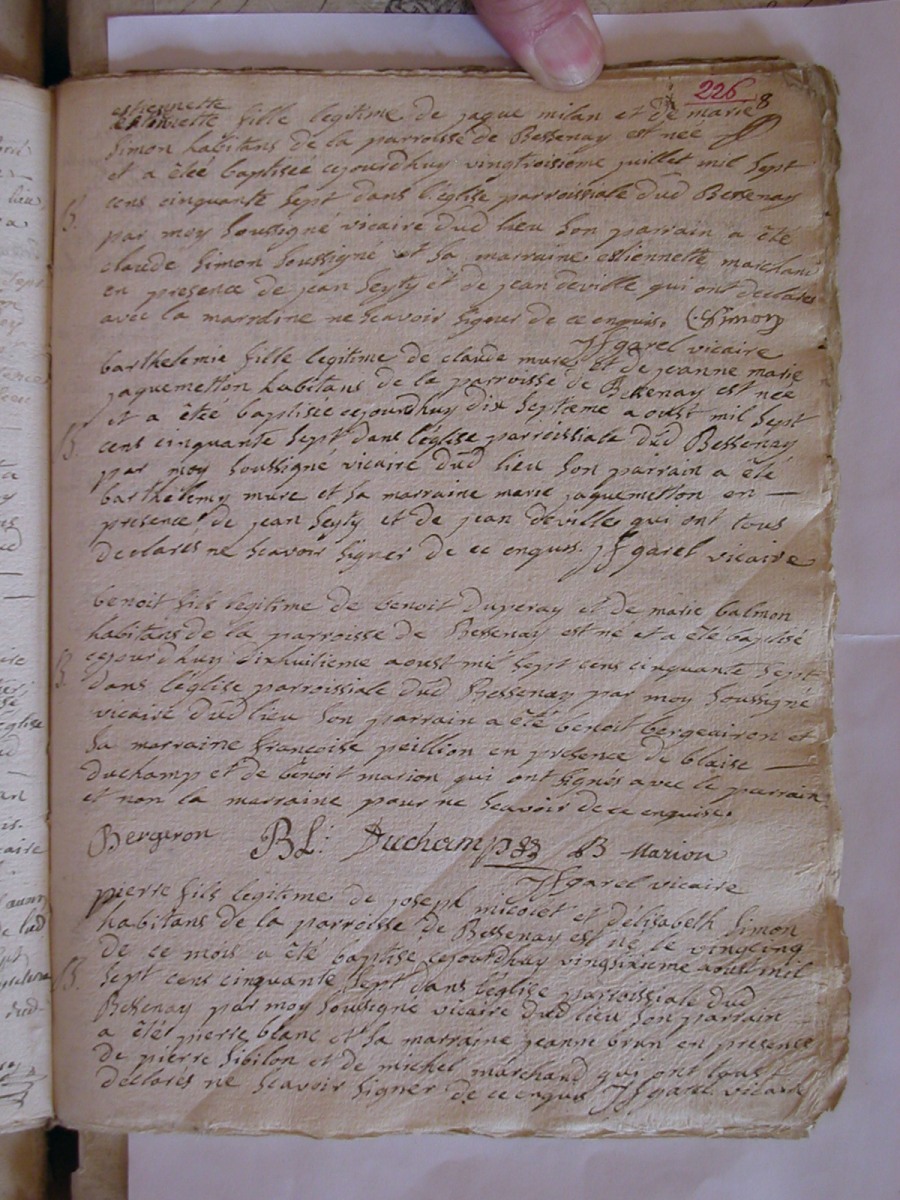 226 8
estiennette
fille legitime de jaque milan et de marie
Simon habitans de la parroisse de Bessenay est née
et a êtéé baptiséé cejourdhuy vingtroisieme juillet mil sept
cens cinquante sept dans l'église parroissiale dud Bessenay
B.
par moy soussigné vicaire dud lieu son parrain a été
claude simon soussigné et sa marraine estiennette marchand
en presence de jean seyty et de jean deville qui ont declarés
avec la marraine ne scavoir signer de ce enquis. C. Simon
JfGarel vicaire
barthelemie fille legitime de claude mure et de jeanne marie
jaquemetton habitans de la parroisse de Bessenay est née
et a êtéé baptisée cejourdhuy dix septieme aoust mil sept
B.
cens cinquante sept dans l'église parroissiale dud Bessenay
par moy soussigné vicaire dud lieu son parrain a été
barthélemy mure et sa marraine marie jaquemetton en
presence de jean seyty et de jean deville qui ont tous
declarés ne scavoir signer de ce enquis. Jfgarel vicaire
benoit fils legitime de benoit duperay et de marie balmon
habitans de la parroisse de Bessenay est né et a été baptisé
cejourdhuy dixhuitieme aoust mil sept cens cinquante sept
B.
dans l'église parroissiale dud Bessenay par moy soussigné
vicaire dud lieu son parrain a été benoit bergeairon et
sa marraine francoise peillion en presence de blaise
duchamp et de benoit marion qui ont signés avec le parrain
et non la marraine pour ne scavoir de ce enquise.
Bergeron BL: Duchamp B Marion
Jfgarel vicaire
pierre fils legitime de joseph micolet et délisabeth simon
habitans de la parroisse de Bessenay est né le vingcinq
de ce mois a été baptisé cejourdhuy vingsixieme aoust mil
B.
sept cens cinquante sept dans l'église parroissiale dud
Bessenay par moy soussigné vicaire dud lieu son parrain
a été pierre blanc et sa marraine jeanne brun en presence
de pierre sibilon et de michel marchand qui ont tous
declarés ne scavoir signer de ce enquis Jfgarel vicaire